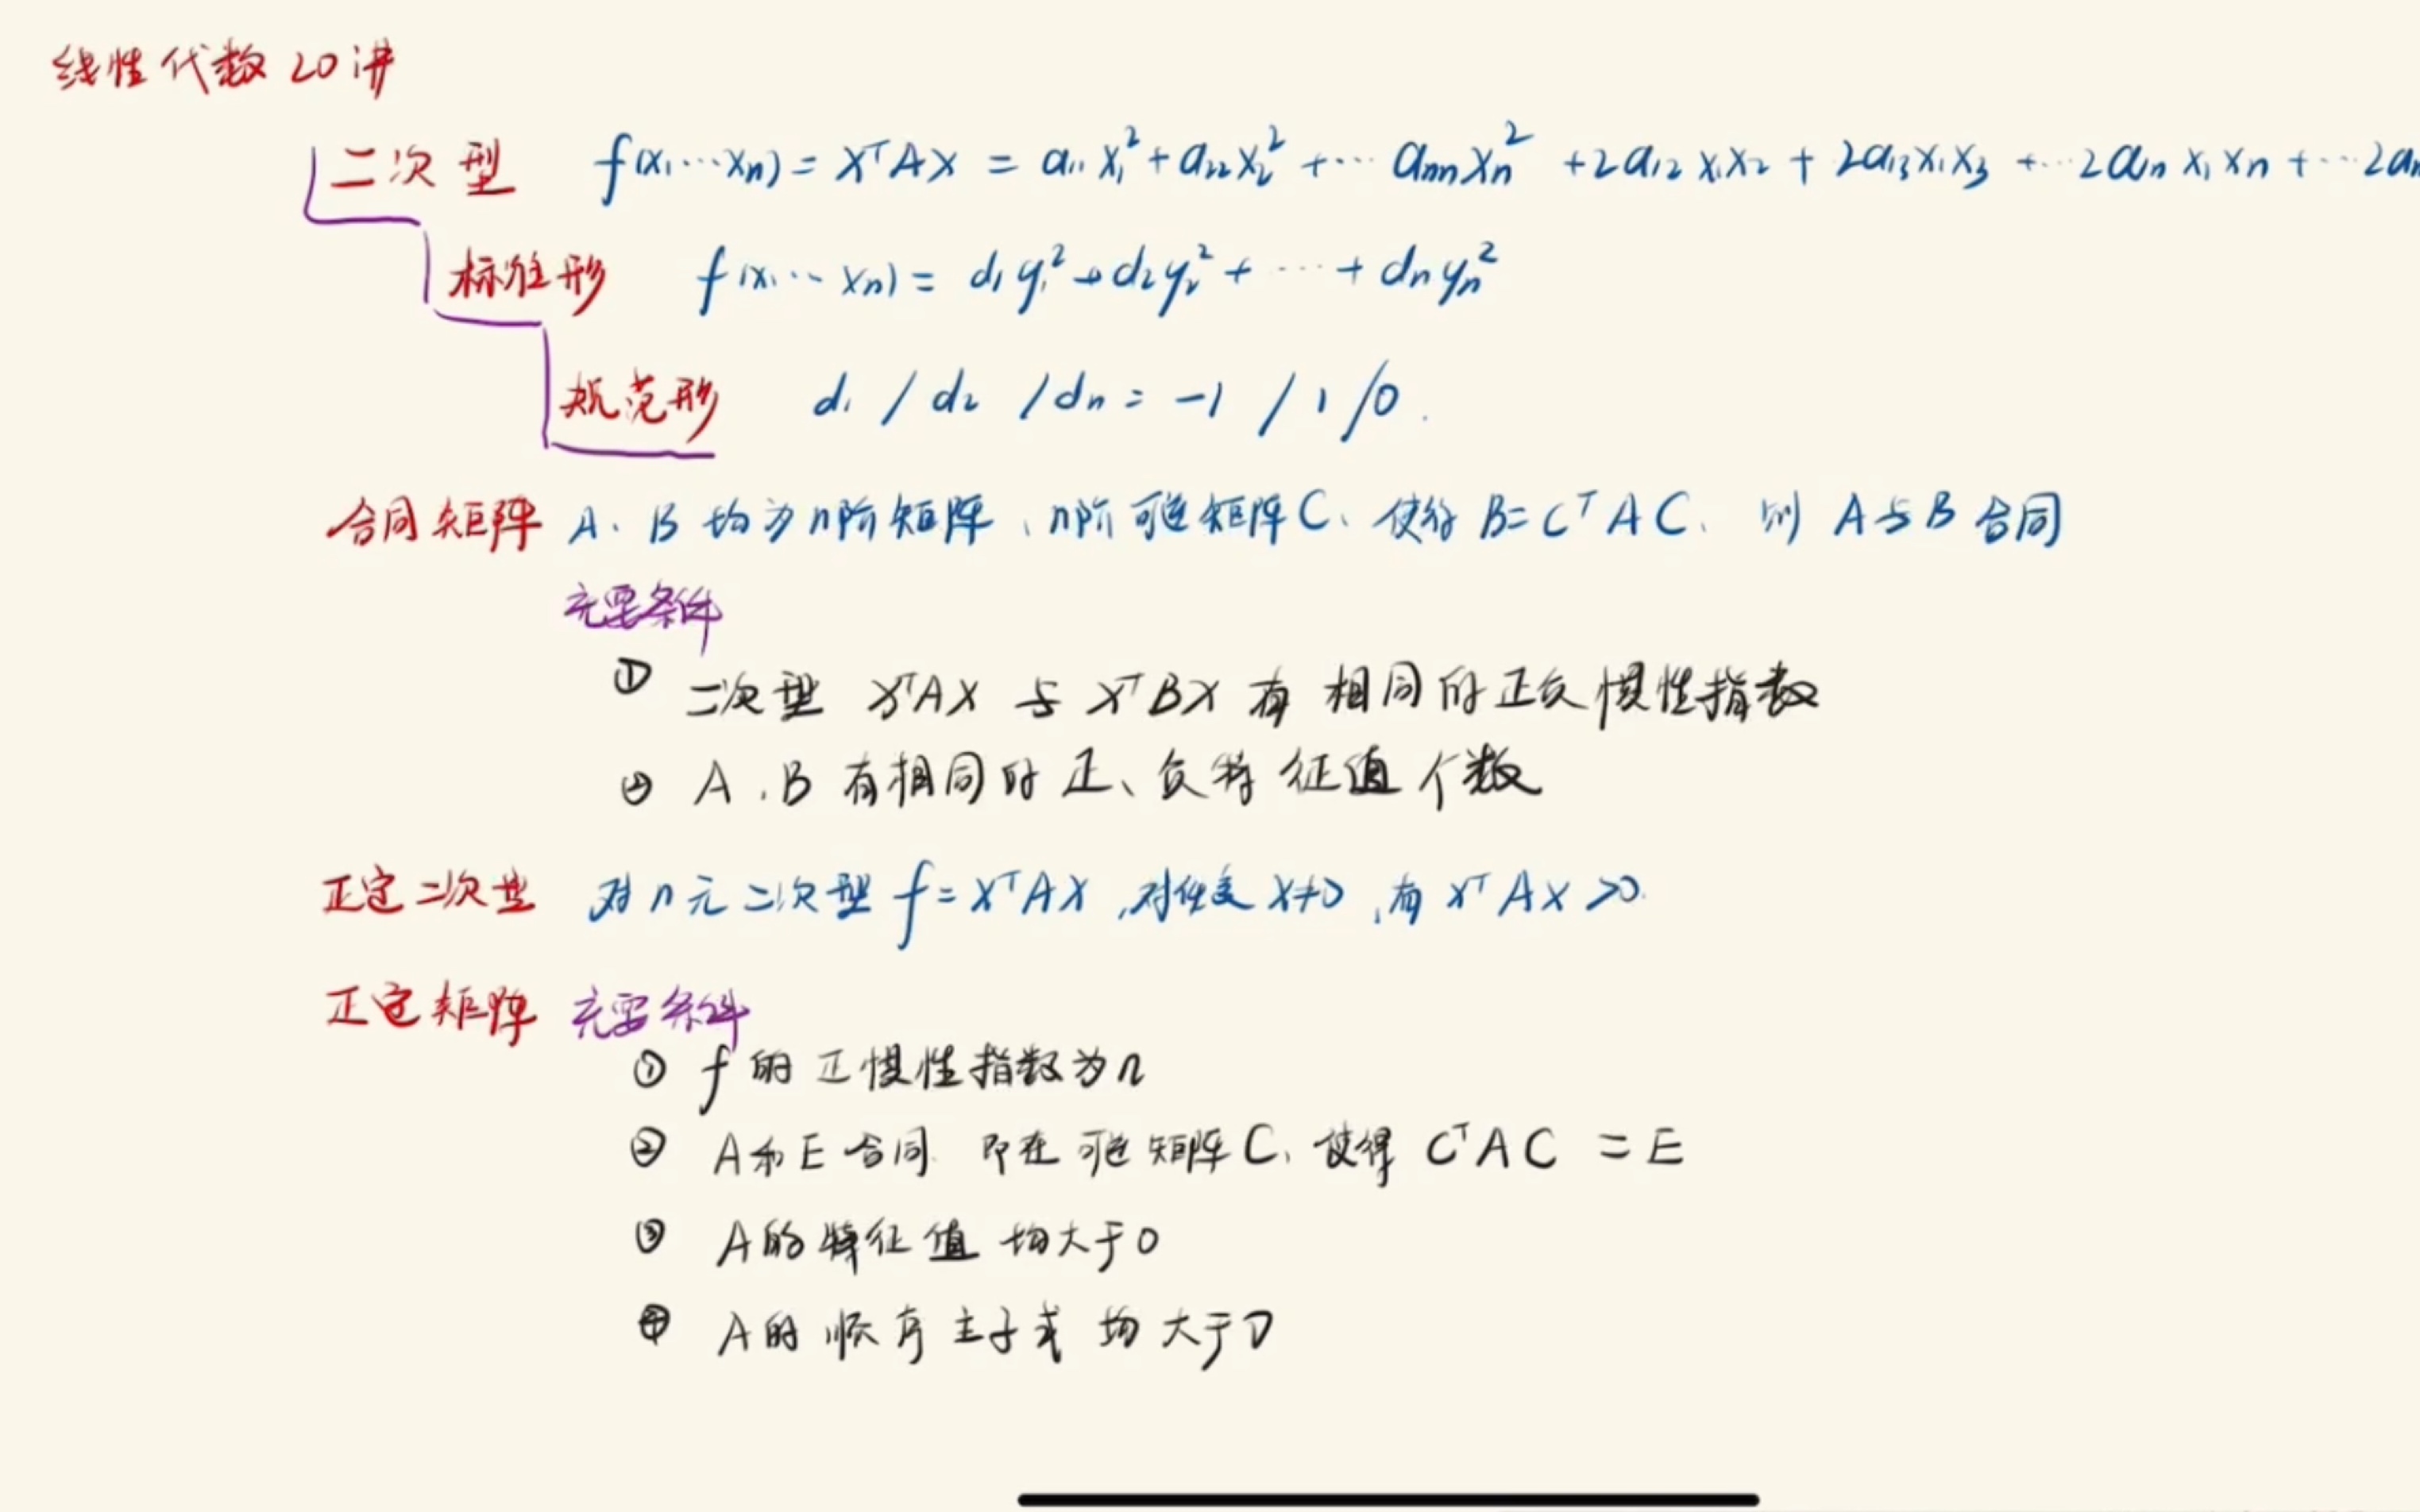 线性代数20讲
二次型 f(x₁…xₙ) = XᵀAX = a₁₁x₁² + a₂₂x₂² + … aₙₙxₙ² + 2a₁₂x₁x₂ + 2a₁₃x₁x₃ + … 2a₁ₙx₁xₙ + … 2a
标准形 f(x₁…xₙ) = d₁y₁² + d₂y₂² + … + dₙyₙ²
规范形 d₁ / d₂ / dₙ = -1 / 1 / 0.
合同矩阵 A、B 均为n阶矩阵、n阶可逆矩阵C、使得 B=CᵀAC、则 A与B合同
充要条件
① 二次型 XᵀAX 与 XᵀBX 有相同的正负惯性指数
② A、B有相同的正、负特征值个数
正定二次型 对n元二次型 f=XᵀAX,对任意X≠0,有XᵀAX>0.
正定矩阵 充要条件
① f的正惯性指数为n
② A和E合同. 即在可逆矩阵C、使得 CᵀAC = E
③ A的特征值均大于0
④ A的顺序主子式均大于0